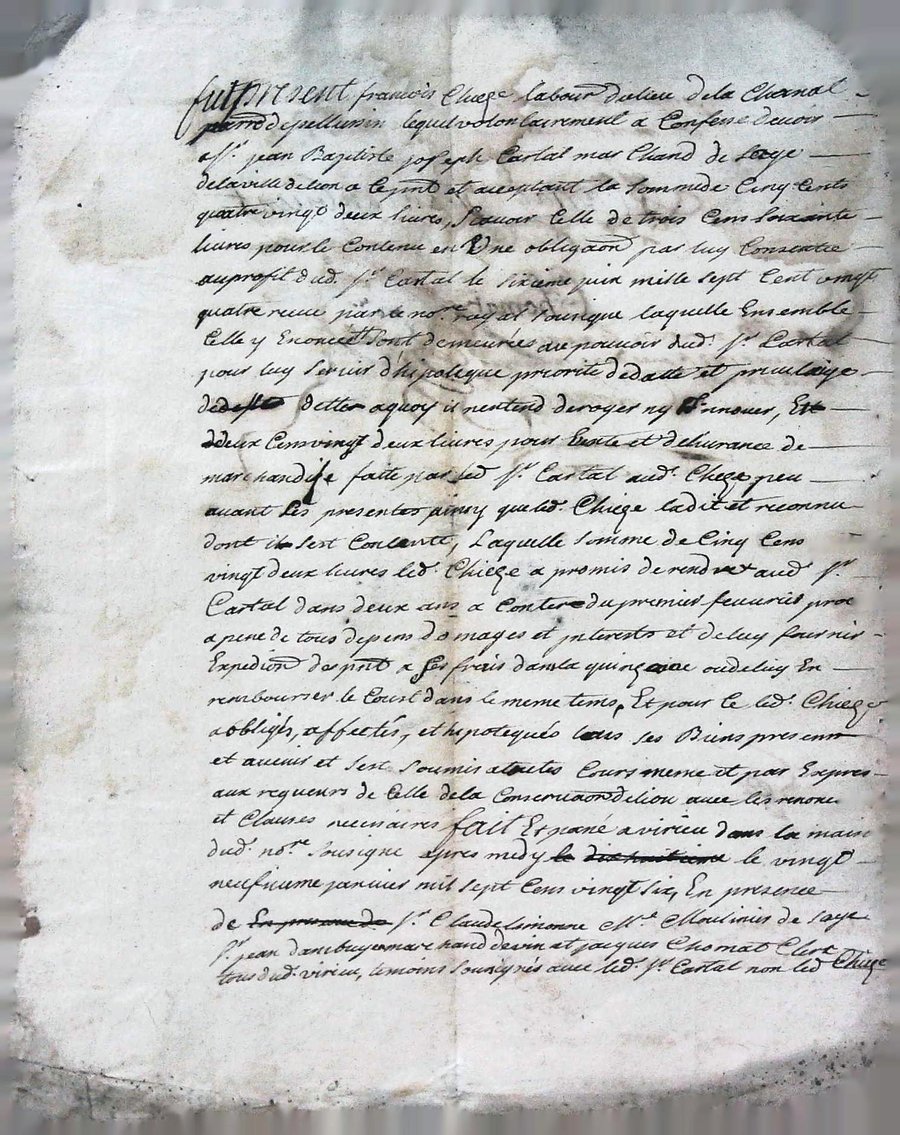 fut present francois Chieze labour du lieu de la Charnal
parre de pellussin lequel volontairement a Confessé devoir
a Sr. jean Baptiste joseph Cartal marchand de soye
de la ville de lion a ce pnt et acceptant la somme de Cinq Cents
quatre vingt deux livres, scavoir Celle de trois Cens soixante
livres pour le Contenu en Une obligaõn par luy Consentie
au profit dud. Sr. Cartal le sixieme juin mille sept Cent vingt
quatre receue par le nore royal sousigné laquelle Ensemble
Celle y Enoncée sont demeurées au pouvoir dud. Sr. Cartal
pour luy servir d'hipoteque priorité de datte et privilaige
de dette aquoy il n'entend deroger ny Innover, Et
deux Cens vingt deux livres pour vente et delivrance de
marchandise faite par led Sr. Cartal aud. Chieze peu
avant les presentes ainsy que led. Chieze la dit et reconnu
dont il s'est Contenté, Laquelle somme de Cinq Cens
vingt deux livres led. Chieze a promis de rendre aud Sr.
Cartal dans deux ans a Conter du premier fevurier proc
a peine de tous depens domages et interests et de luy fournir
Expedion des pnt a ses frais dans la quinzaine ou de luy En
rembourser le Coust dans le meme tems, Et pour Ce led. Chieze
a obligés, affectés, et hipotequés tous ses Biens presens
et avenir et s'est soumis a toutes Cours meme et par Expres
aux rigueurs de Celle de la Conservaõn de lion avec les renonc
et Clauses necessaires fait Et passé a virieu dans la maison
dud. nore sousigné apres midy le dixhuitieme le vingt
neufvieme janvier mil sept Cens vingt six, En presence
de En presence de Sr. Claude Simonne Mre. Moulinier de soye
Sr. jean dambuyer marchand de vin et jacques Chomat Clerc
tous dud. virieu, temoins sousignés avec led. Sr. Cartal non led Chieze